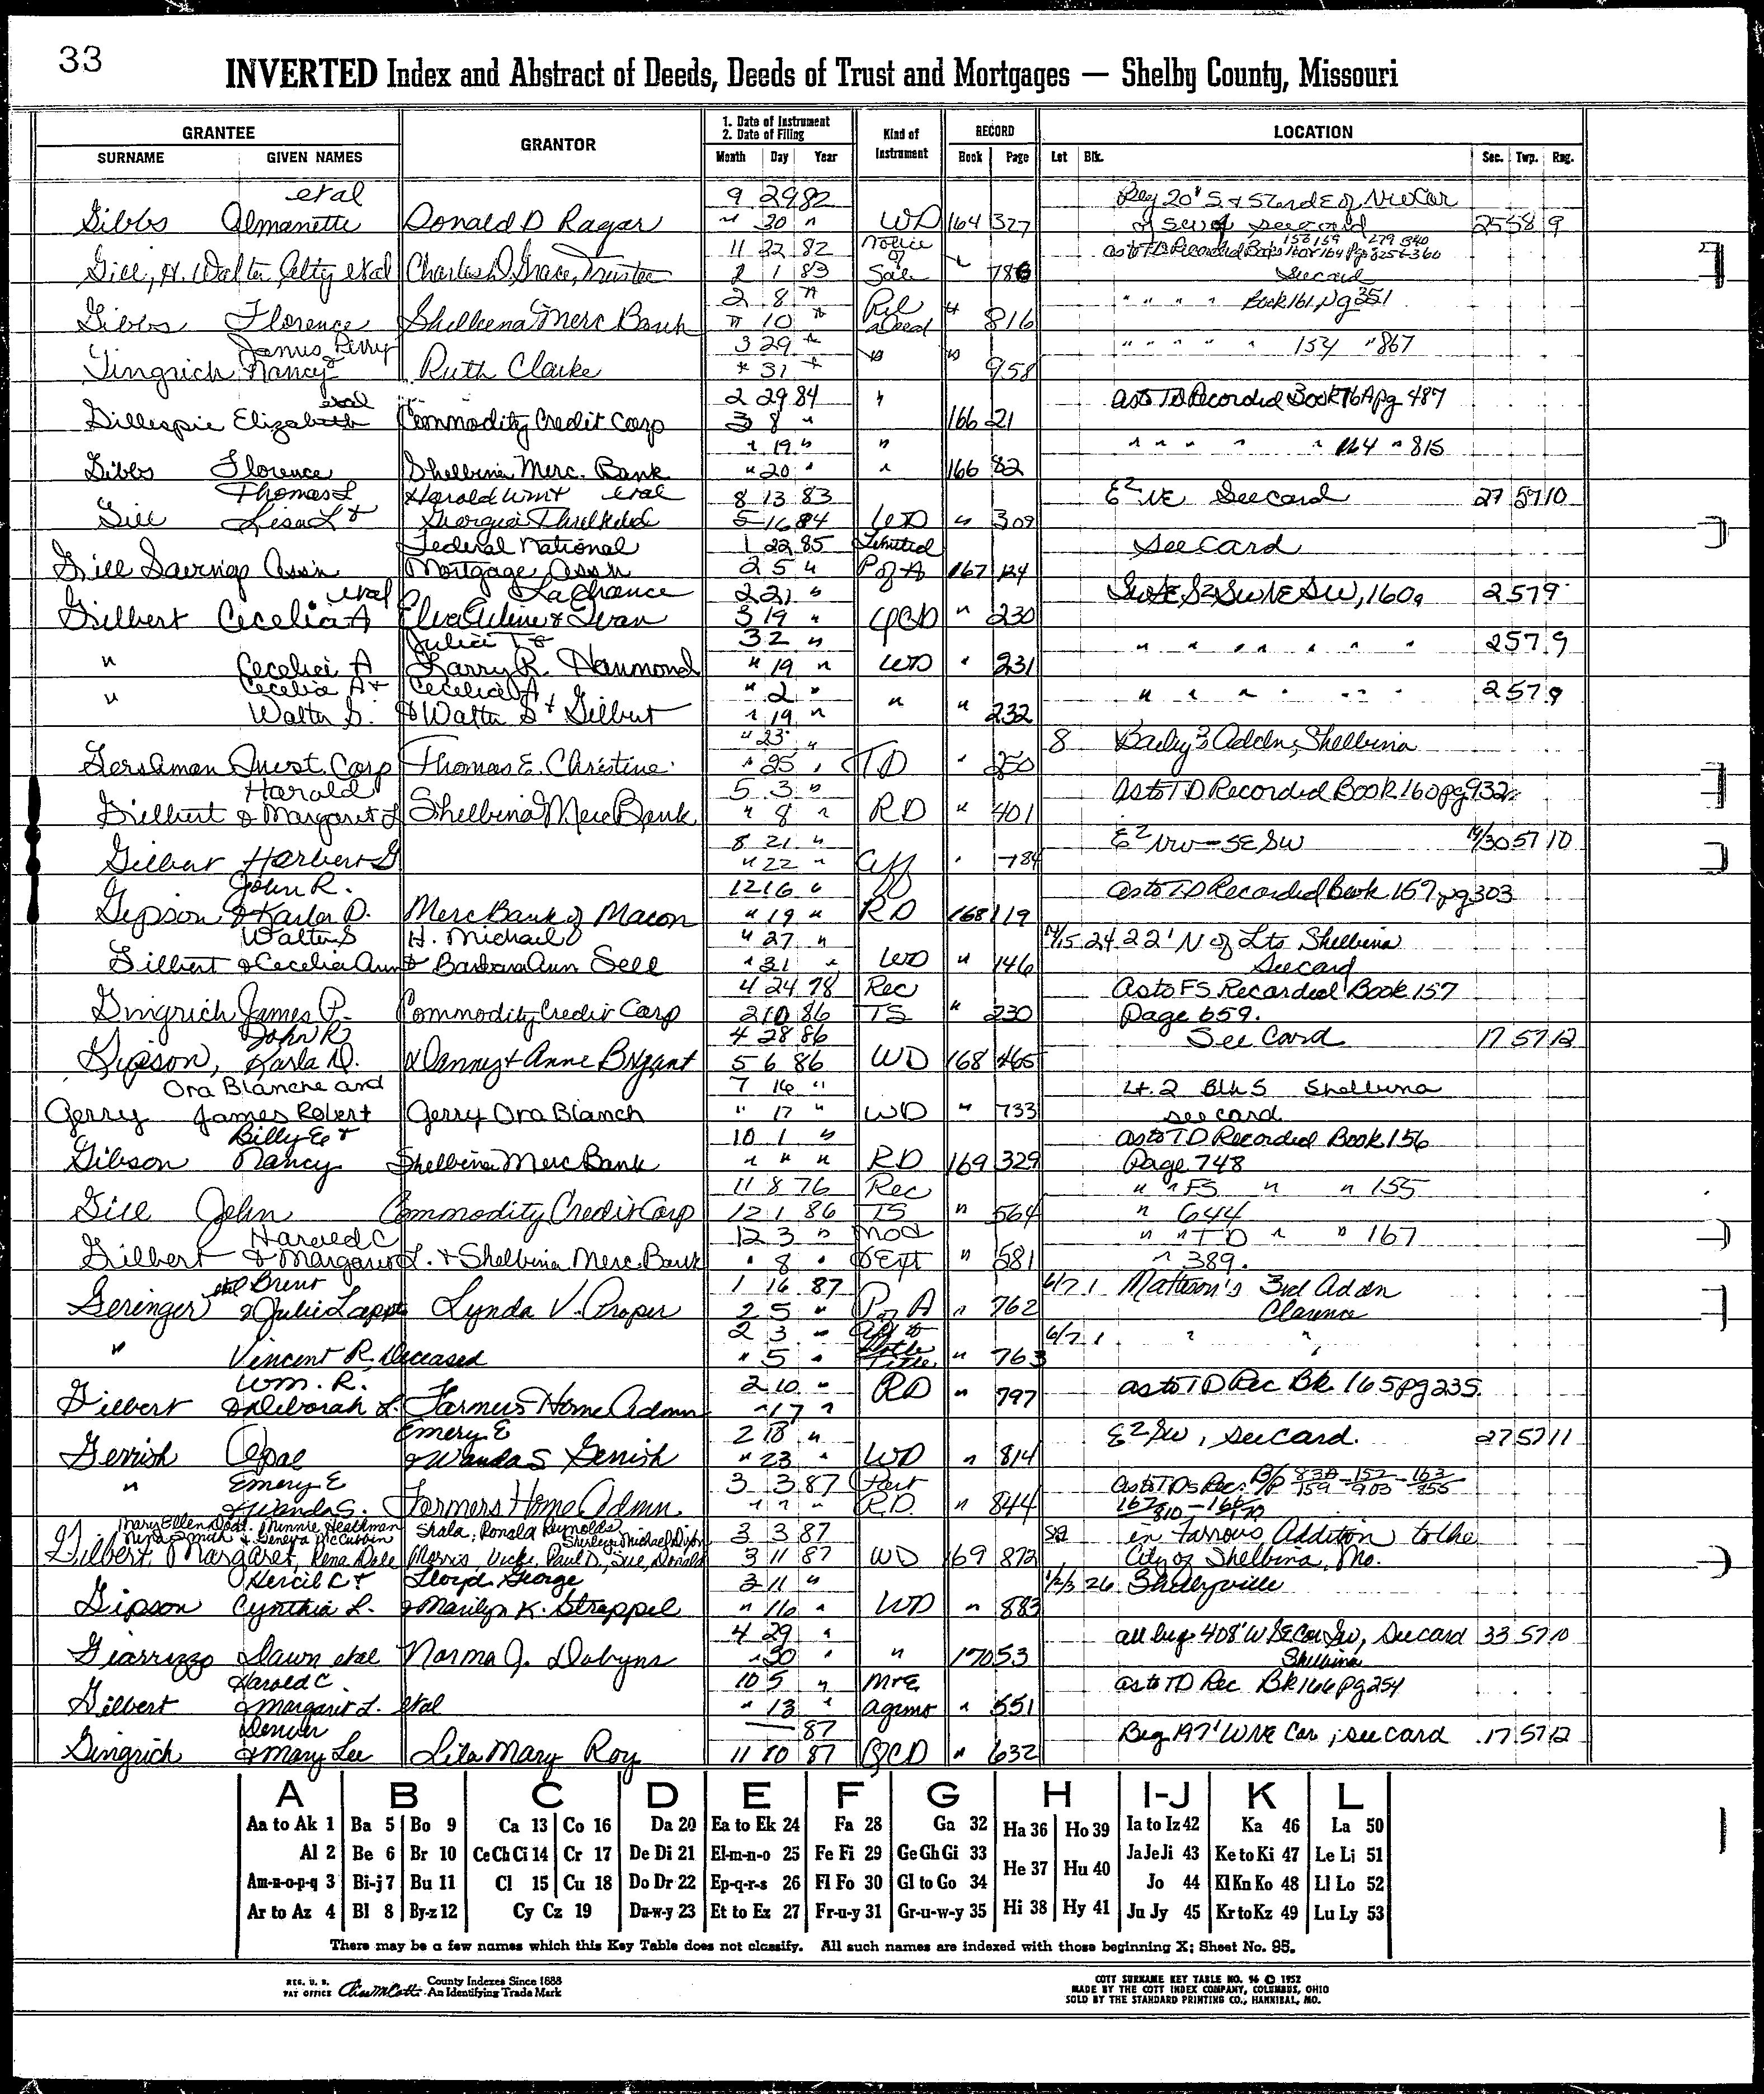 33
INVERTED Index and Abstract of Deeds, Deeds of Trust and Mortgages — Shelby County, Missouri
GRANTEE
SURNAME GIVEN NAMES
GRANTOR
1. Date of Instrument
2. Date of Filing
Month Day Year
Kind of Instrument
RECORD
Book Page
LOCATION
Lot Blk. Sec. Twp. Rng.
etal 9 29 82 Beg 20' S & 52 rods E of NW Cor
Gibbs Almanette Donald D Ragar " 30 " WD 164 327 of SW of see card 25 58 9
11 22 82 Notice of as to TD Recorded
Gill, H. Walter, Atty etal Charles D. Grace, Trustee 2 1 83 Sale " 786 See card
2 8 " Rel " " " " Book 161, pg 351
Gibbs Florence Shelbina Merc Bank " 10 " Deed " 816
James Perry & 3 29 " " " " " " 154 " 867
Gingrich Nancy Ruth Clarke " 31 " " " 958
etal 2 29 84 " as to TD Recorded Book 76A pg 487
Gillespie Elizabeth Commodity Credit Corp 3 8 " 166 21
" 19 " " " " " " " 164 " 815
Gibbs Florence Shelbina Merc. Bank " 20 " " 166 82
Thomas L Harold Wm & etal 8 13 83 E2 NE See card 27 57 10
Gill Lisa L & Georgia Threlkeld 5 16 84 WD " 309
Federal National 1 22 85 Limited See card
Gill Savings Ass'n Mortgage Ass'n 2 5 " P of A 167 124
etal LaChance 2 21 " 160a 2 57 9
Gilbert Cecelia A Elva Arline & Ivan 3 19 " QCD " 230
Julia T & 3 2 " " " " " " " " 2 57 9
" Cecelia A Larry R. Hammond " 19 " WD " 231
Cecelia A & Cecelia A " 2 " " " " " " " 2 57 9
" Walter S. & Walter S. Gilbert " 19 " " " 232
" 23 " 8 Baily's Addn, Shelbina
Gershman Invst. Corp Thomas E. Christine " 25 " TD " 250
Harold 5 3 " as to TD Recorded Book 160 pg 932
Gilbert & Margaret L Shelbina Merc Bank " 8 " RD " 401
8 21 " E2 NW - SE SW 19/30 57 10
Gilbert Harbert G " 22 " Aff " 784
John R. 12 16 " as to TD Recorded Book 159 pg 303
Gipson & Karla D. Merc Bank of Macon " 19 " RD 168 119
Walter S H. Michael " 27 " 14/15 24 22' N of Lts Shelbina
Gilbert & Cecelia Ann & Barbara Ann Sell " 31 " WD " 146 See card
4 24 78 Rec As to FS Recorded Book 157
Gingrich James P. Commodity Credit Corp 2 10 86 TS " 230 Page 659.
John R 4 28 86 See Card 17 57 12
Gipson, Karla D. & Danny & Anne Bryant 5 6 86 WD 168 465
Ora Blanche and 7 16 " Lt. 2 Blk 5 Shelbina
Gerry James Robert Gerry Ora Blanch " 17 " WD " 733 see card
Billy E & 10 1 " as to TD Recorded Book 156
Gibson Nancy Shelbina Merc Bank " " " RD 169 329 Page 748
11 8 76 Rec " " FS " " 155
Gill John Commodity Credit Corp 12 1 86 TS " 564 " 644
Harold C 12 3 " Mod " " TD " " 167
Gilbert & Margaret L. & Shelbina Merc. Bank " 8 " & Ext " 581 " 389.
etal Brent 1 16 87 6/7 1 Mattson's 3rd Addn
Geringer & Julie Lapp Lynda V. Proper 2 5 " P of A " 762 Clarence
2 3 " Aff to 6/7 1 " "
" Vincent R, Deceased " 5 " Title " 763
Wm. R. 2 10 " RD as to TD Rec Bk 165 pg 235
Gilbert & Deborah L. Farmers Home Admn " 17 " " 797
Emery E 2 18 " E2 SW, see card. 27 57 11
Gerrish Opal & Wanda S Gerrish " 23 " WD " 814
" Emery E 3 3 87 Part as to TDs Rec. B/P 83A/159 - 152/903 - 163/855
& Wanda S. Farmers Home Admn. " " " RD. " 844
Mary Ellen Minnie Heathman Shala, Ronald Reynolds 3 3 87 in Farrows Addition to the
Nina Smith & Geneva McCubbin Sherley, Michael
Gilbert Margaret, Rena Dale Morris, Vicke, Paul D, Sue, Donald 3 11 87 WD 169 872 City of Shelbina, Mo.
Hercil C & Lloyd George 3 11 " 1/2/3 26 Shelbyville
Gipson Cynthia L. & Marilyn K. Strappel " 16 " WD " 883
4 29 " all beg 408' W SE Cor SW, See card 33 57 10
Giarrizzo Dawn etal Norma J. Dobyns " 30 " " 170 53 Shelbina
Harold C. 10 5 " Mtg as to TD Rec Bk 166 pg 254
Gilbert & Margaret L. etal " 13 " agrmt " 551
Denver — 87 Beg 197' W NE Cor; see card 17 57 12
Gingrich & Mary Lee Lila Mary Roy 11 10 87 QCD " 632
A B C D E F G H I-J K L
Aa to Ak 1 Ba 5 Bo 9 Ca 13 Co 16 Da 20 Ea to Ek 24 Fa 28 Ga 32 Ha 36 Ho 39 Ia to Iz 42 Ka 46 La 50
Al 2 Be 6 Br 10 Ce Ch Ci 14 Cr 17 De Di 21 El-m-n-o 25 Fe Fi 29 Ge Gh Gi 33 He 37 Hu 40 Ja Je Ji 43 Ke to Ki 47 Le Li 51
Am-n-o-p-q 3 Bi-j 7 Bu 11 Cl 15 Cu 18 Do Dr 22 Ep-q-r-s 26 Fl Fo 30 Gl to Go 34 Hi 38 Hy 41 Jo 44 Kl Kn Ko 48 Ll Lo 52
Ar to Az 4 Bl 8 By-z 12 Cy Cz 19 Du-w-y 23 Et to Ez 27 Fr-u-y 31 Gr-u-w-y 35 Ju Jy 45 Kr to Kz 49 Lu Ly 53
There may be a few names which this Key Table does not classify. All such names are indexed with those beginning X; Sheet No. 95.
REG. U. S. PAT OFFICE County Indexes Since 1888
An Identifying Trade Mark
COTT SURNAME KEY TABLE NO. 96 © 1952
MADE BY THE COTT INDEX COMPANY, COLUMBUS, OHIO
SOLD BY THE STANDARD PRINTING CO., HANNIBAL, MO.